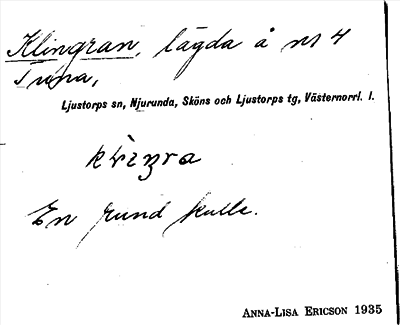 Klingran, lägda å nr 4
Tuna,
Ljustorps sn, Njurunda, Sköns och Ljustorps tg, Västernorrl. l.
En rund kulle.
ANNA-LISA ERICSON 1935